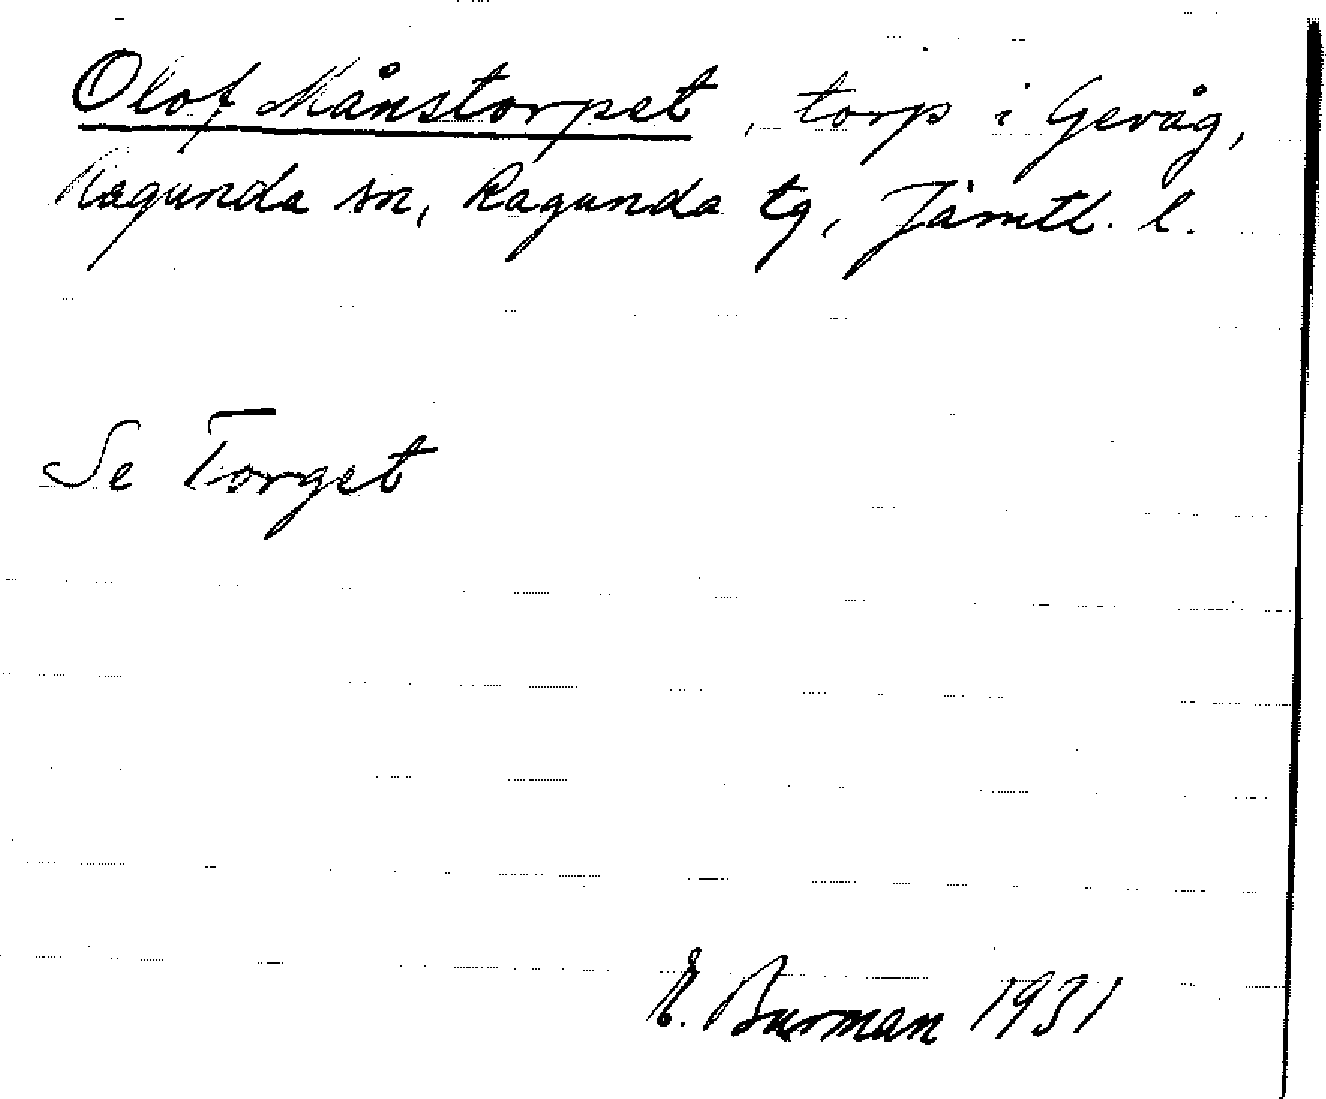 Olof Månstorpet, torp i Gevåg,
Ragunda sn, Ragunda tg, Jämtl. l.
Se Torget
E. Burman 1931